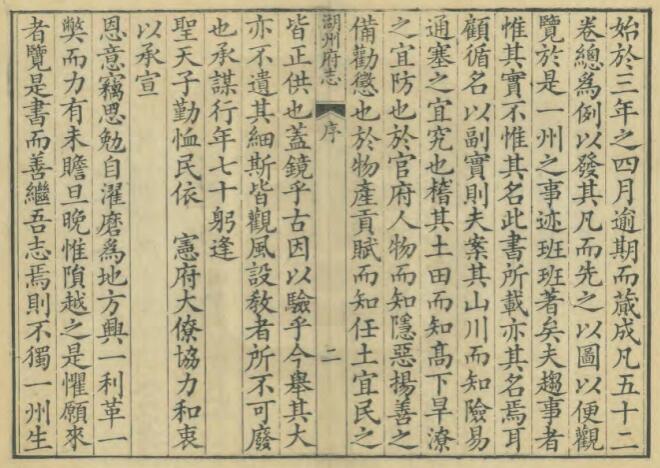 始於三年之四月逾期而蕆成凡五十二
卷總爲例以發其凡而先之以圖以便觀
覽於是一州之事迹班班著矣夫趨事者
惟其實不惟其名此書所載亦其名焉耳
顧循名以副實則夫案其山川而知險易
通塞之宜究也稽其土田而知高下旱潦
之宜防也於官府人物而知隱惡揚善之
備勸懲也於物產貢賦而知任土宜民之
湖州府志
序
二
皆正供也蓋鏡乎古因以驗乎今舉其大
亦不遺其細斯皆觀風設敎者所不可廢
也承謀行年七十躬逢
聖天子勤恤民依 憲府大僚協力和衷
以承宣
恩意竊思勉自濯磨爲地方興一利革一
弊而力有未贍旦晚惟隕越之是懼願來
者覽是書而善繼吾志焉則不獨一州生